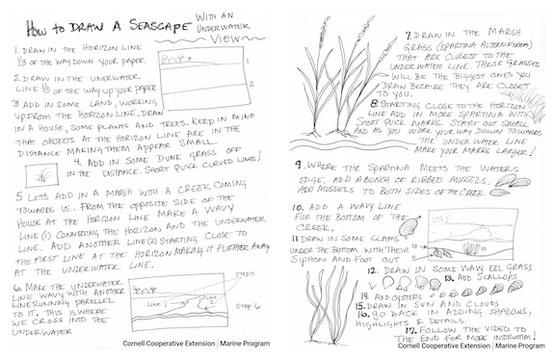 How to DRAW A SEASCAPE WITH AN
UNDERWATER
View
1. DRAW IN THE HORIZON LINE
1/3 OF THE WAY DOWN YOUR PAPER.
2. DRAW IN THE UNDERWATER
LINE 1/3 OF THE WAY UP YOUR PAPER
3 ADD IN SOME LAND, WORKING
UP FROM THE HORIZON LINE. DRAW
IN A HOUSE, SOME PLANTS AND TREES. KEEP IN MIND
THAT OBJECTS AT THE HORIZON LINE ARE IN THE
DISTANCE MAKING THEM APPEAR SMALL.
4. ADD IN SOME DUNE GRASS OFF
IN THE DISTANCE. SHORT QUICK CURVED LINES!
5 LETS ADD IN A MARSH WITH A CREEK COMING
TOWARDS US. FROM THE OPPOSITE SIDE OF THE
HOUSE AT THE HORIZON LINE MAKE A WAVY
LINE (1) CONNECTING THE HORIZON AND THE UNDERWATER
LINE. ADD ANOTHER LINE (2) STARTING CLOSE TO
THE FIRST LINE AT THE HORIZON MAKING IT FURTHER AWAY
AT THE UNDERWATER LINE.
6. MAKE THE UNDERWATER
LINE WAVY WITH ANOTHER
LINE RUNNING PARALLEL
TO IT. THIS IS WHERE
WE CROSS INTO THE
UNDERWATER
1
2
STEP 5
LINE 1
STEP 6
Cornell Cooperative Extension | Marine Program
7. DRAW IN THE MARSH
GRASS (SPARTINA ALTERNIFLORA)
THAT ARE CLOSEST TO THE
UNDERWATER LINE. THESE GRASSES
WILL BE THE BIGGEST ONES YOU
DRAW BECAUSE THEY ARE CLOSEST
TO YOU.
8. STARTING CLOSE TO THE HORIZON
LINE ADD IN MORE SPARTINA WITH
SHORT QUICK MARKS. START OUT SMALL
AND AS YOU WORK YOUR WAY DOWN TOWARDS
THE UNDERWATER LINE
MAKE YOUR MARKS LARGER!
9. WHERE THE SPARTINA MEETS THE WATERS
EDGE, ADD A BUNCH OF RIBBED MUSSELS.
ADD MUSSELS TO BOTH SIDES OF THE CREEK.
10. ADD A WAVY LINE
FOR THE BOTTOM OF THE
CREEK.
11 DRAW IN SOME CLAMS
UNDER THE BOTTOM WITH THEIR
SIPHON AND FOOT OUT
12. DRAW IN SOME WAVY EEL GRASS
13. ADD SCALLOPS
14. ADD OYSTERS
15. DRAW IN SUN AND CLOUDS
16. GO BACK IN ADDING SHADOWS,
HIGHLIGHTS & DETAILS.
17. FOLLOW THE VIDEO TO
THE END FOR MORE INSTRUCTION!
Cornell Cooperative Extension | Marine Program